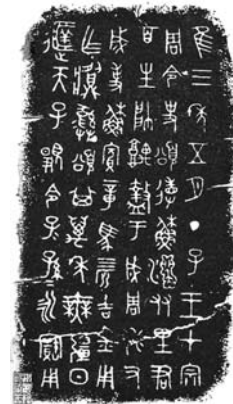 隹三年五月丁巳王才宗
周令史頌省蘇友里君
百生帥盩于成周休又
成事蘇賓章馬四匹吉金用
乍彝頌其萬年無疆日
天子顯令子子孫孫永寶用